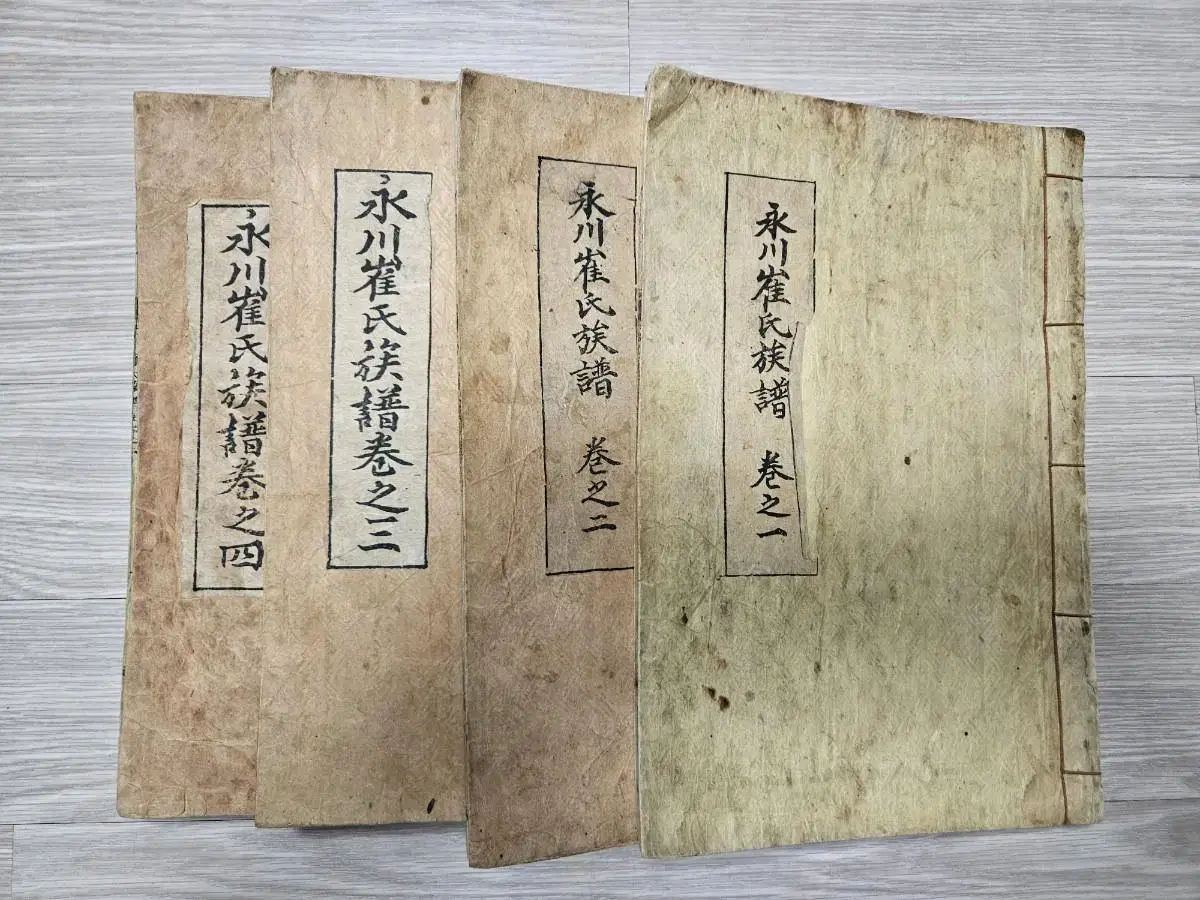 永川崔氏族譜 卷之一
永川崔氏族譜 卷之二
永川崔氏族譜卷之三
永川崔氏族譜卷之四